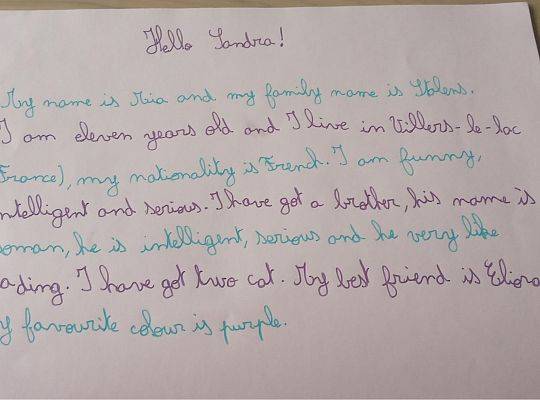 Hello Sandra!
My name is Mia and my family name is Stolens.
I am eleven years old and I live in Villers-le-lac
France), my nationality is French. I am funny,
ntelligent and serious. I have got a brother, his name is
oman, he is intelligent, serious and he very like
ading. I have got two cat. My best friend is Eliora
y favourite colour is purple.